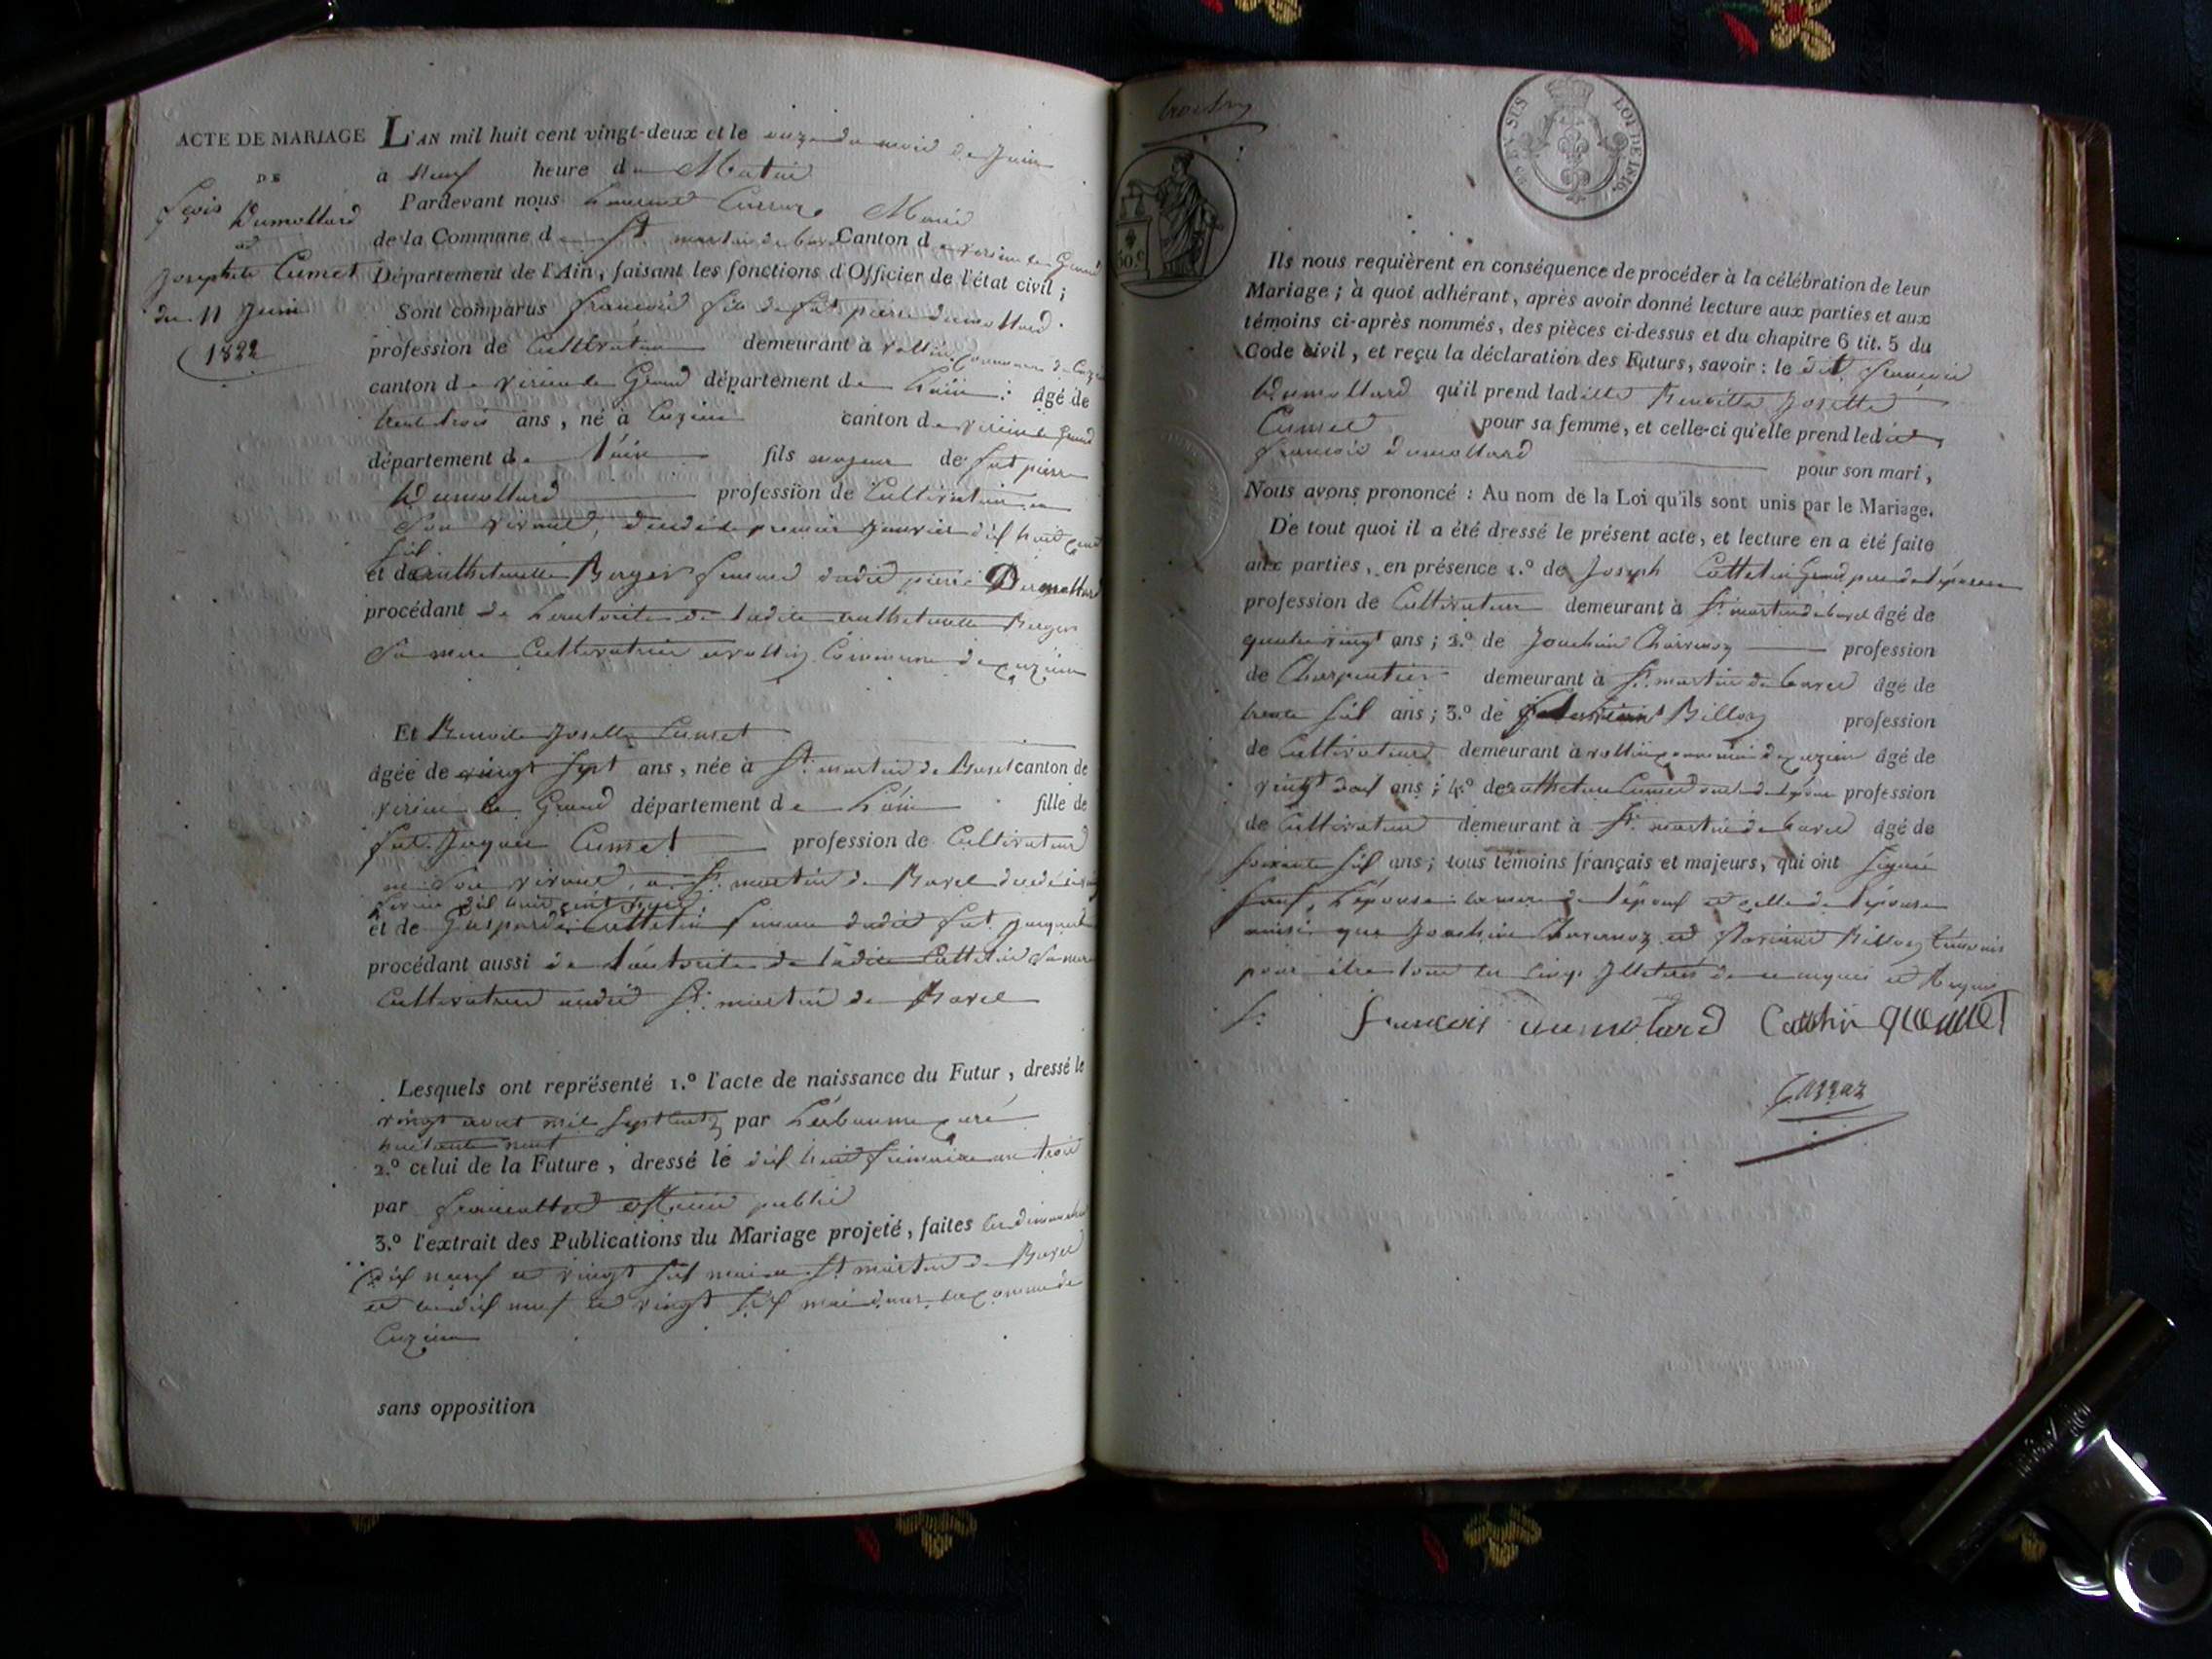 ACTE DE MARIAGE
DE
Dumollard
et
Josephte Cumet
du 11 Juin
1822
L'AN mil huit cent vingt-deux et le onze du mois de Juin
à neuf heure du Matin
Pardevant nous Maire
de la Commune de St martin de bavel Canton de virieu le Grand
Département de l'Ain, faisant les fonctions d'Officier de l'état civil ;
Sont comparus françois fils de fut pierre dumollard
profession de Cultivateur demeurant à vollien Commune de Cuzieu
canton de virieu le Grand département de L'ain : âgé de
trente trois ans, né à Cuzieu canton de virieu le Grand
département de L'ain fils majeur de fut pierre
Dumollard profession de Cultivateur en
Son vivant, décédé le premier Janvier dix huit cent
et de anthelmette Berger femme dudit pierre Dumollard
procédant de L'autorité de ladite anthelmette Berger
Sa mere Cultivatrice a vollien Commune de cuzieu
Et Benoite Josette Cumet
âgée de vingt sept ans, née à St martin de Bavel canton de
virieu le Grand département de L'ain fille de
fut Jaques Cumet profession de Cultivateur
en Son vivant, a St martin de Bavel décédé
et de Gasparde Cattelin femme dudit fut Jaques
procédant aussi de l'autorité de ladite Cattelin Sa mere
Cultivateur audit St martin de Bavel
Lesquels ont représenté 1.º l'acte de naissance du Futur, dressé le
vingt aout mil sept cent par curé
huitante neuf
2.º celui de la Future, dressé le dix huit frimaire an trois
par officier public
3.º l'extrait des Publications du Mariage projeté, faites les dimanches
dix neuf et vingt six mai a St martin de Bavel
et les dix neuf et vingt six mai dans la commune de
Cuzieu
sans opposition
LOI DE 1816.
50.c
Ils nous requièrent en conséquence de procéder à la célébration de leur
Mariage ; à quoi adhérant, après avoir donné lecture aux parties et aux
témoins ci-après nommés, des pièces ci-dessus et du chapitre 6 tit. 5 du
Code civil, et reçu la déclaration des Futurs, savoir : le dit françois
Dumollard qu'il prend ladite Benoitte Josette
Cumet pour sa femme, et celle-ci qu'elle prend ledit
françois dumollard pour son mari,
Nous avons prononcé : Au nom de la Loi qu'ils sont unis par le Mariage.
De tout quoi il a été dressé le présent acte, et lecture en a été faite
aux parties, en présence 1.º de Joseph Cattelin Grand pere de l'épouse
profession de Cultivateur demeurant à St martin de bavel âgé de
quatre vingt ans ; 2.º de Joachim Charvnoz profession
de Charpentier demeurant à St martin de bavel âgé de
trente six ans ; 3.º de Billoz profession
de Cultivateur demeurant à vollien commune de cuzieu âgé de
vingt ans ; 4.º de anthelme Cumet oncle de l'épouse profession
de Cultivateur demeurant à St martin de bavel âgé de
soixante six ans ; tous témoins français et majeurs, qui ont signé
sauf, L'épouse la mere de l'époux et celle de l'épouse
ainsi que Joachim Charvnoz et Billoz témoins
pour être tous les cinq illiterés de ce enquis et Requis
françois dumolard Cattelin qumet